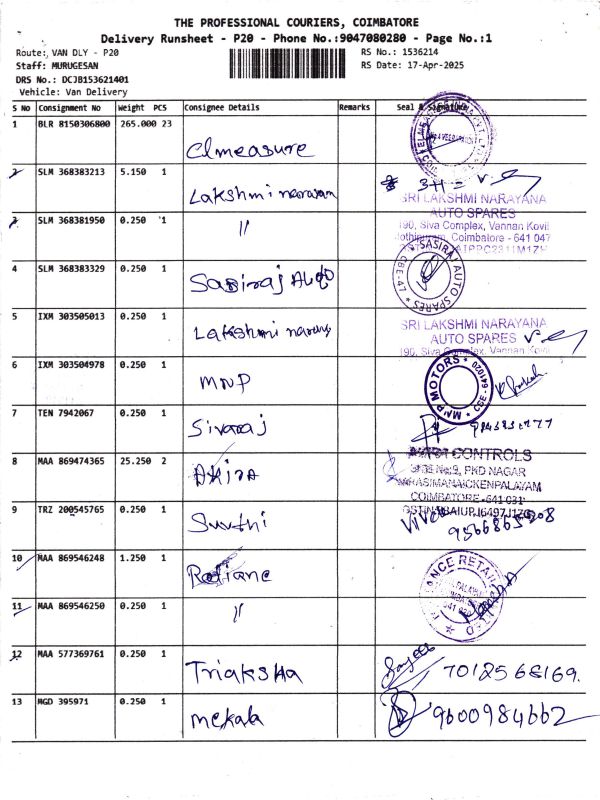 THE PROFESSIONAL COURIERS, COIMBATORE
Delivery Runsheet - P20 - Phone No.:9047080280 - Page No.:1
Route: VAN DLY - P20 RS No.: 1536214
Staff: MURUGESAN RS Date: 17-Apr-2025
DRS No.: DCJB153621401
Vehicle: Van Delivery
S No Consignment No Weight PCS Consignee Details Remarks Seal & Signature
1 BLR 8150306800 265.000 23 Elmeasure
2 SLM 368383213 5.150 1 Lakshmi narayan
SRI LAKSHMI NARAYANA
AUTO SPARES
190, Siva Complex, Vannan Kovil
Coimbatore - 641 047
3 SLM 368381950 0.250 1 "
4 SLM 368383329 0.250 1 Sasiraj Auto SASIRAJ AUTO SPARES CBE-47
5 IXM 303505013 0.250 1 Lakshmi narayan
SRI LAKSHMI NARAYANA
AUTO SPARES
190, Siva Complex, Vannan Kovil
6 IXM 303504978 0.250 1 MNP MNP MOTORS CBE - 641020
7 TEN 7942067 0.250 1 Sivaraj
8 MAA 869474365 25.250 2 Akira
CONTROLS
PKD NAGAR
NARASIMANAICKENPALAYAM
COIMBATORE - 641 031
9 TRZ 200545765 0.250 1 Vivek
10 MAA 869546248 1.250 1 Reliance RELIANCE RETAIL
11 MAA 869546250 0.250 1 "
12 MAA 577369761 0.250 1 Triaksha 7012568169.
13 MGD 395971 0.250 1 Mekala 9600984662